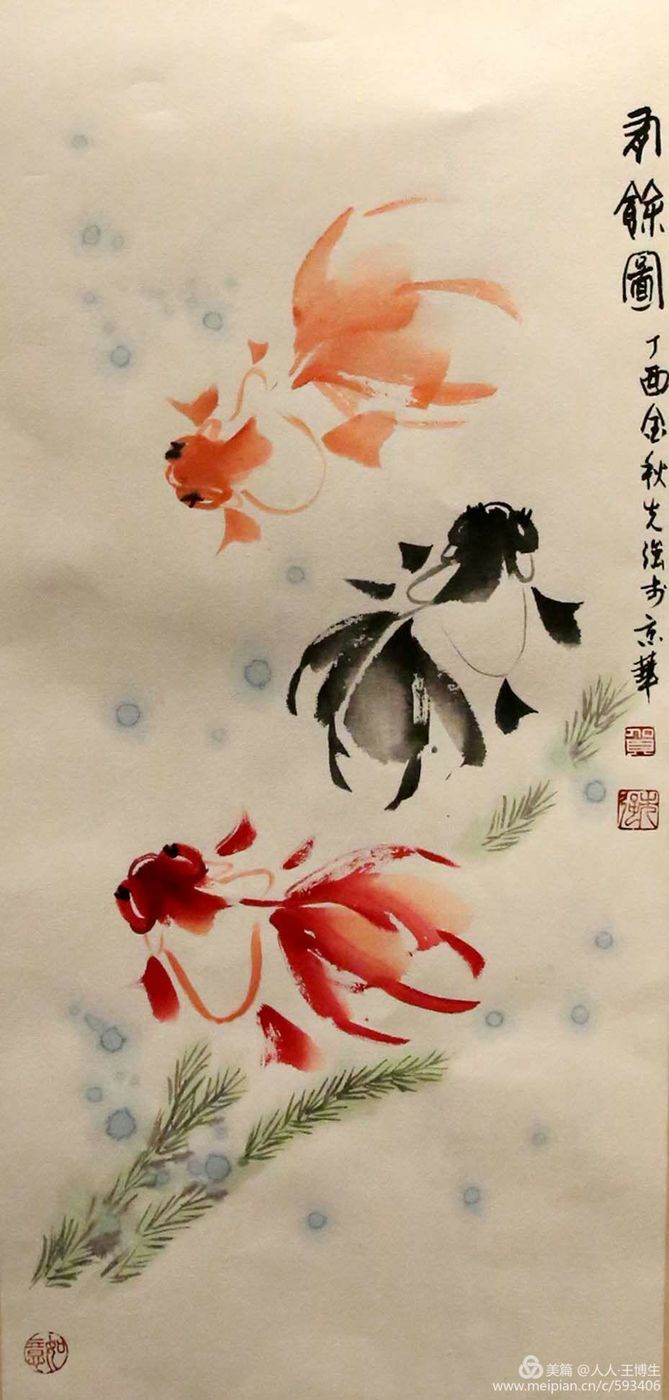 有餘圖
丁酉金秋先強於京華
賀
先強
如意
美篇 @人人·王博生
www.meipian.cn/c/593406